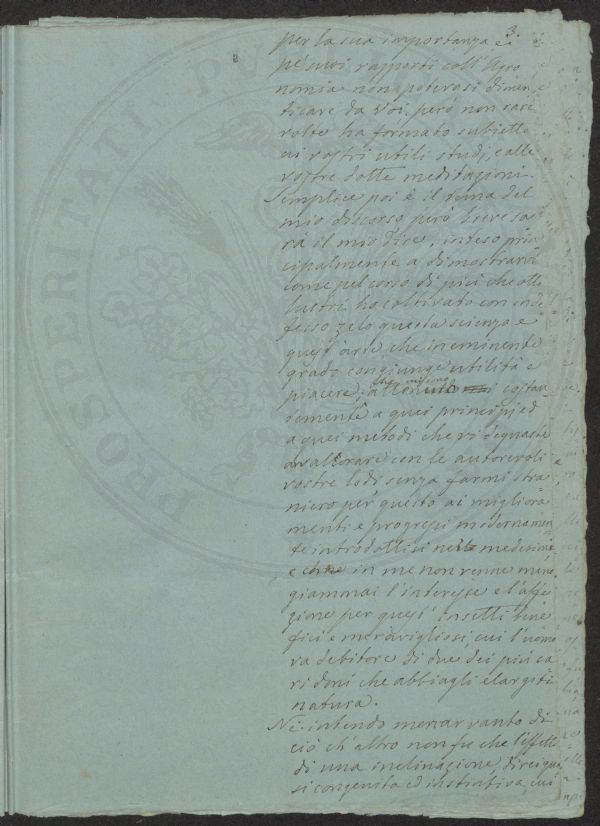 3.
per la sua importanza e
pe' suoi rapporti coll' Agro
nomia non potevasi dimen
ticare da Voi, però non rare
volte ha formato subietto
ai vostri utili studj, e alle
vostre dotte meditazioni.
Semplice poi è il tema del
mio discorso però breve sa
rà il mio dire, inteso prin
cipalmente a dimostrarvi
come pel corso di più che otto
lustri ho coltivato con inde
fesso zelo questa scienza e
quest' arte che in eminente
grado congiunge utilità e
piacere; costan
temente a quei principj ed
a quei metodi che vi degnaste
avvalorare con le autorevoli
vostre lodi senza farmi stra
niero per questo ai migliora
menti e progressi modernamen
te introdottisi nelle medesime
e che in me non venne meno
giammai l'interesse e l'affe
zione per quest' insetti bene
fici e meravigliosi, cui l'uomo
va debitore di due dei più ca
ri doni che abbiagli elargiti
natura.
Nè intendo menar vanto di
ciò ch' altro non fu che l'effetto
di una inclinazione, direi qua
si congenita ed instintiva, cui
PROSPERITATI PU